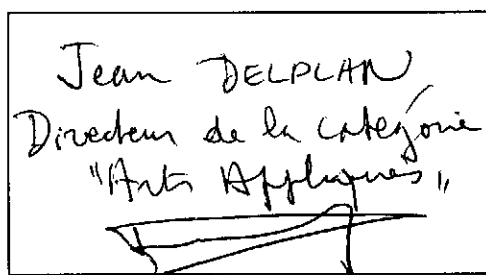 Jean DELPLAN
Directeur de la catégorie
"Arts Appliqués"